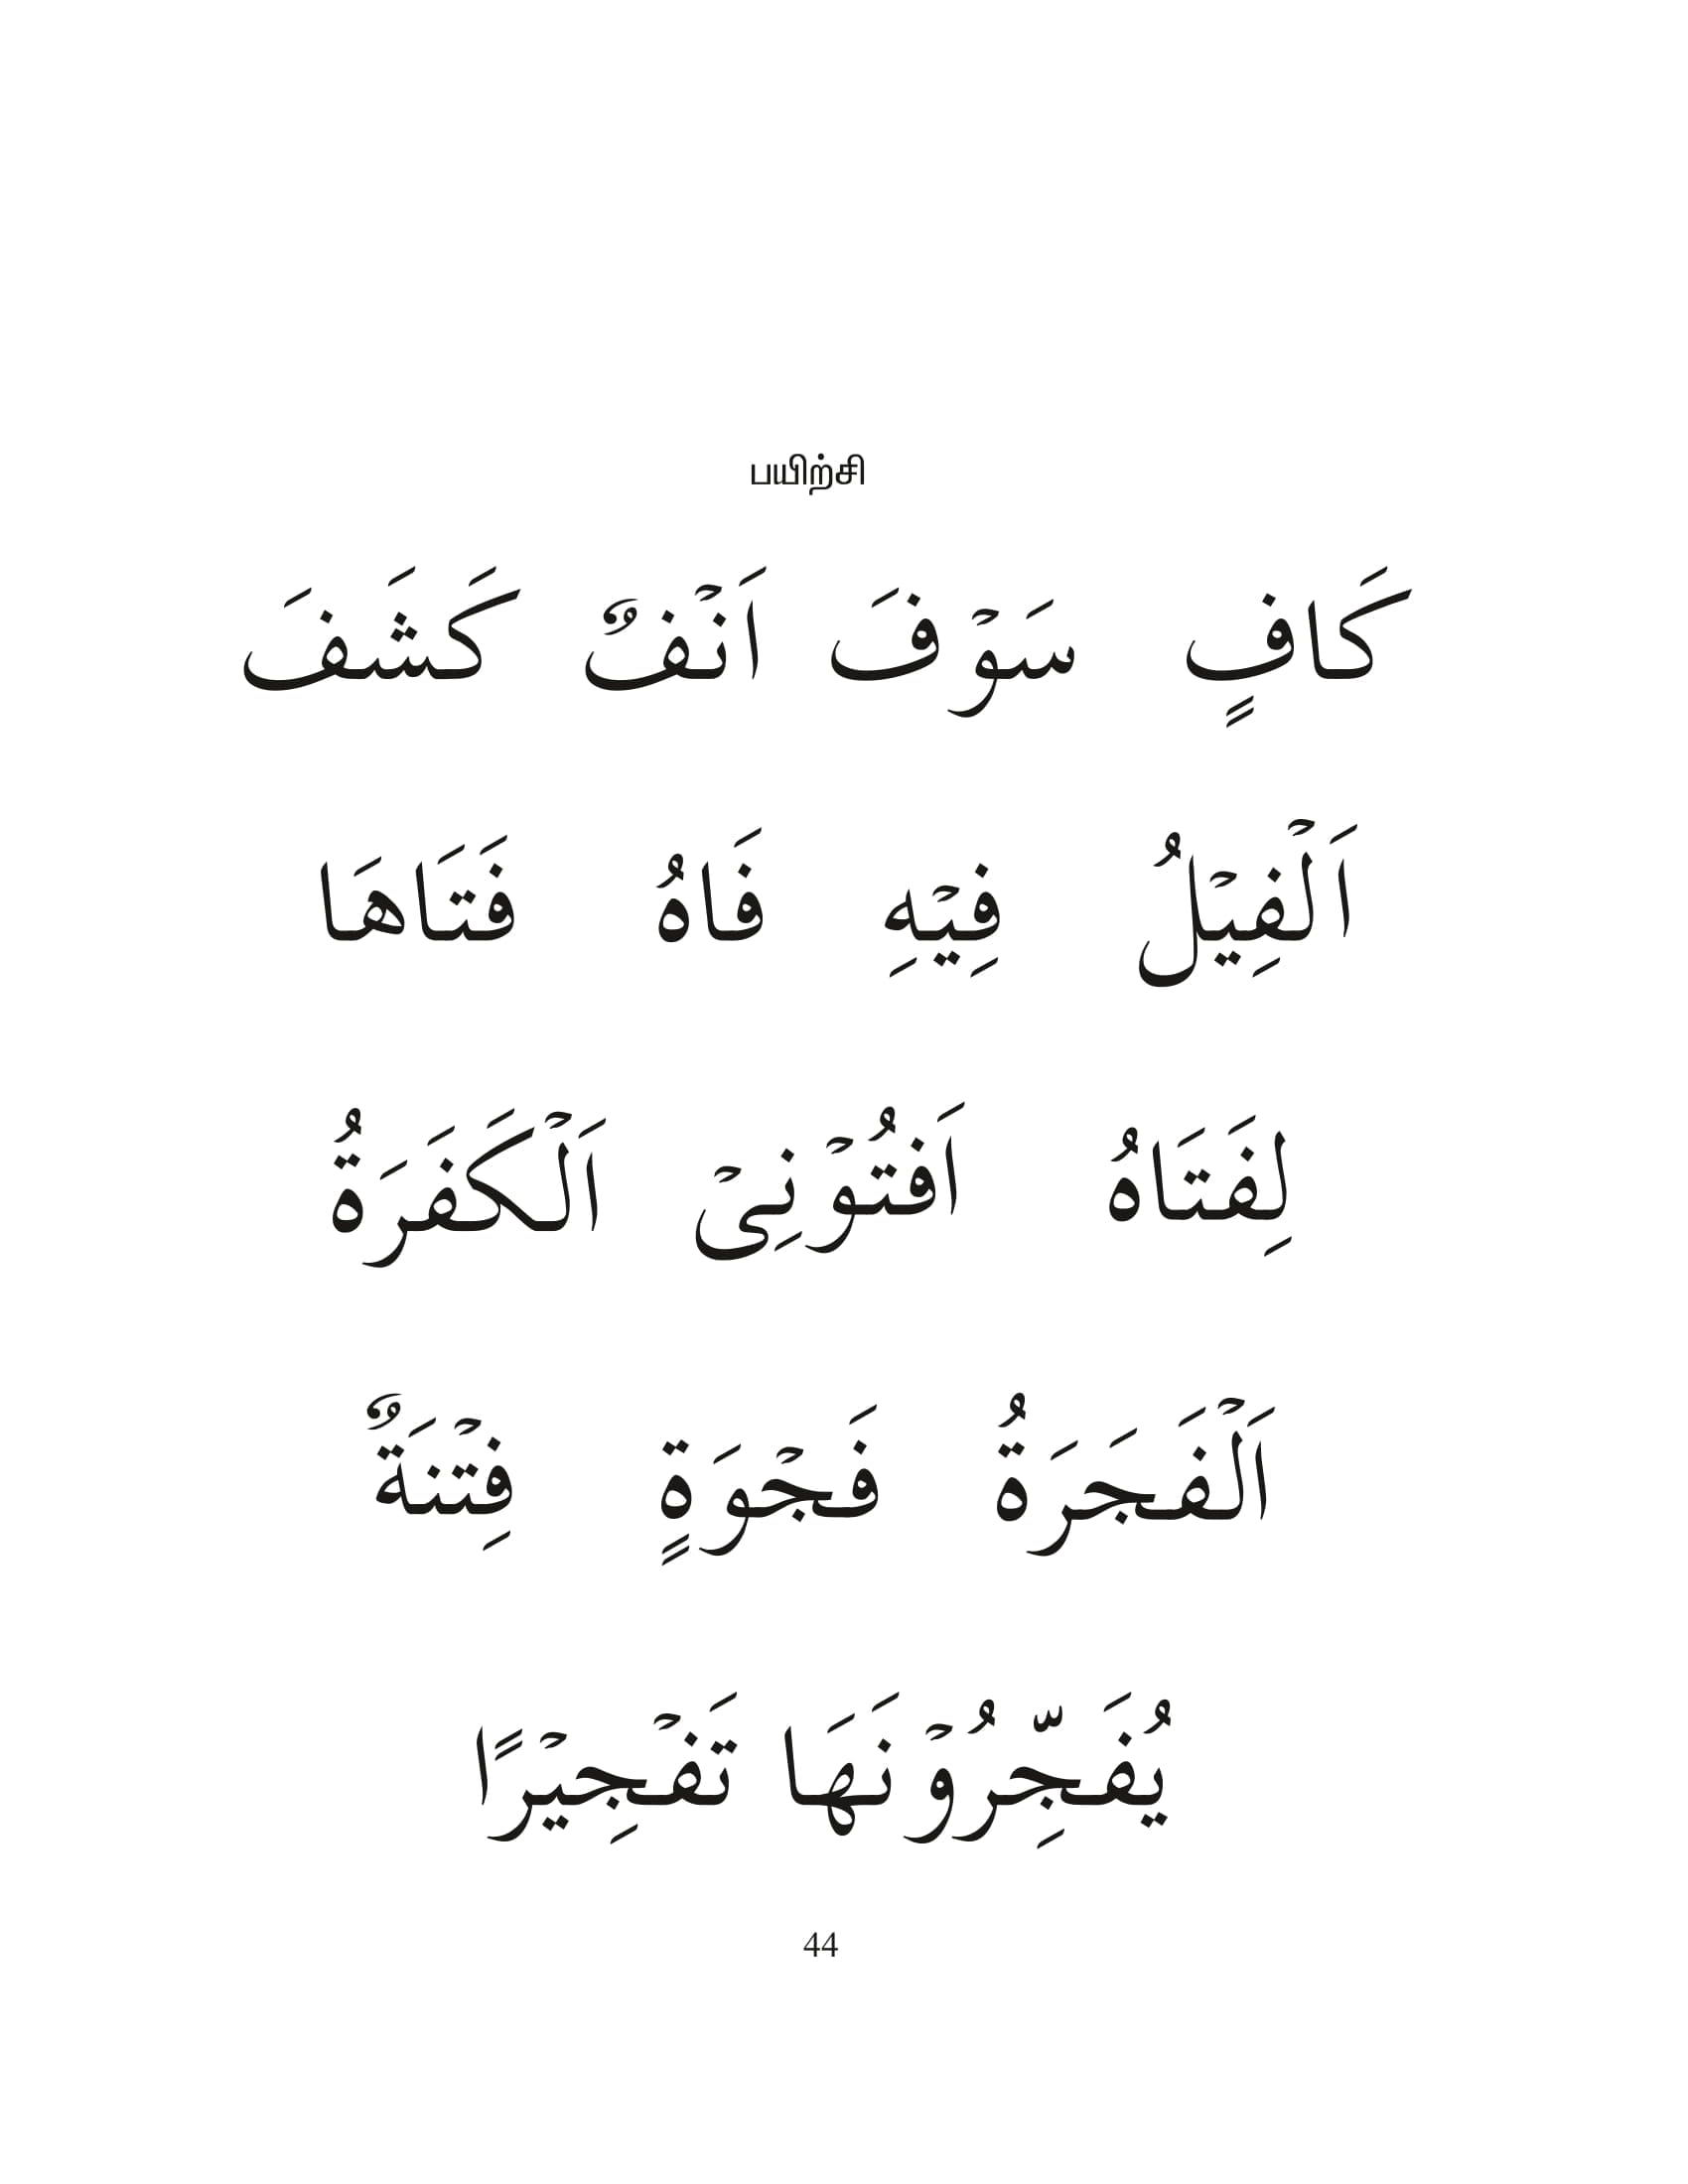 பயிற்சி
كَافٍ سَوْفَ اَنْفٌ كَشَفَ
اَلْفِيْلُ فِيْهِ فَاهُ فَتَاهَا
لِفَتَاهُ اَفْتُوْنِيْ اَلْكَفَرَةُ
اَلْفَجَرَةُ فَجْوَةٍ فِتْنَةٌ
يُفَجِّرُوْنَهَا تَفْجِيْرًا
44